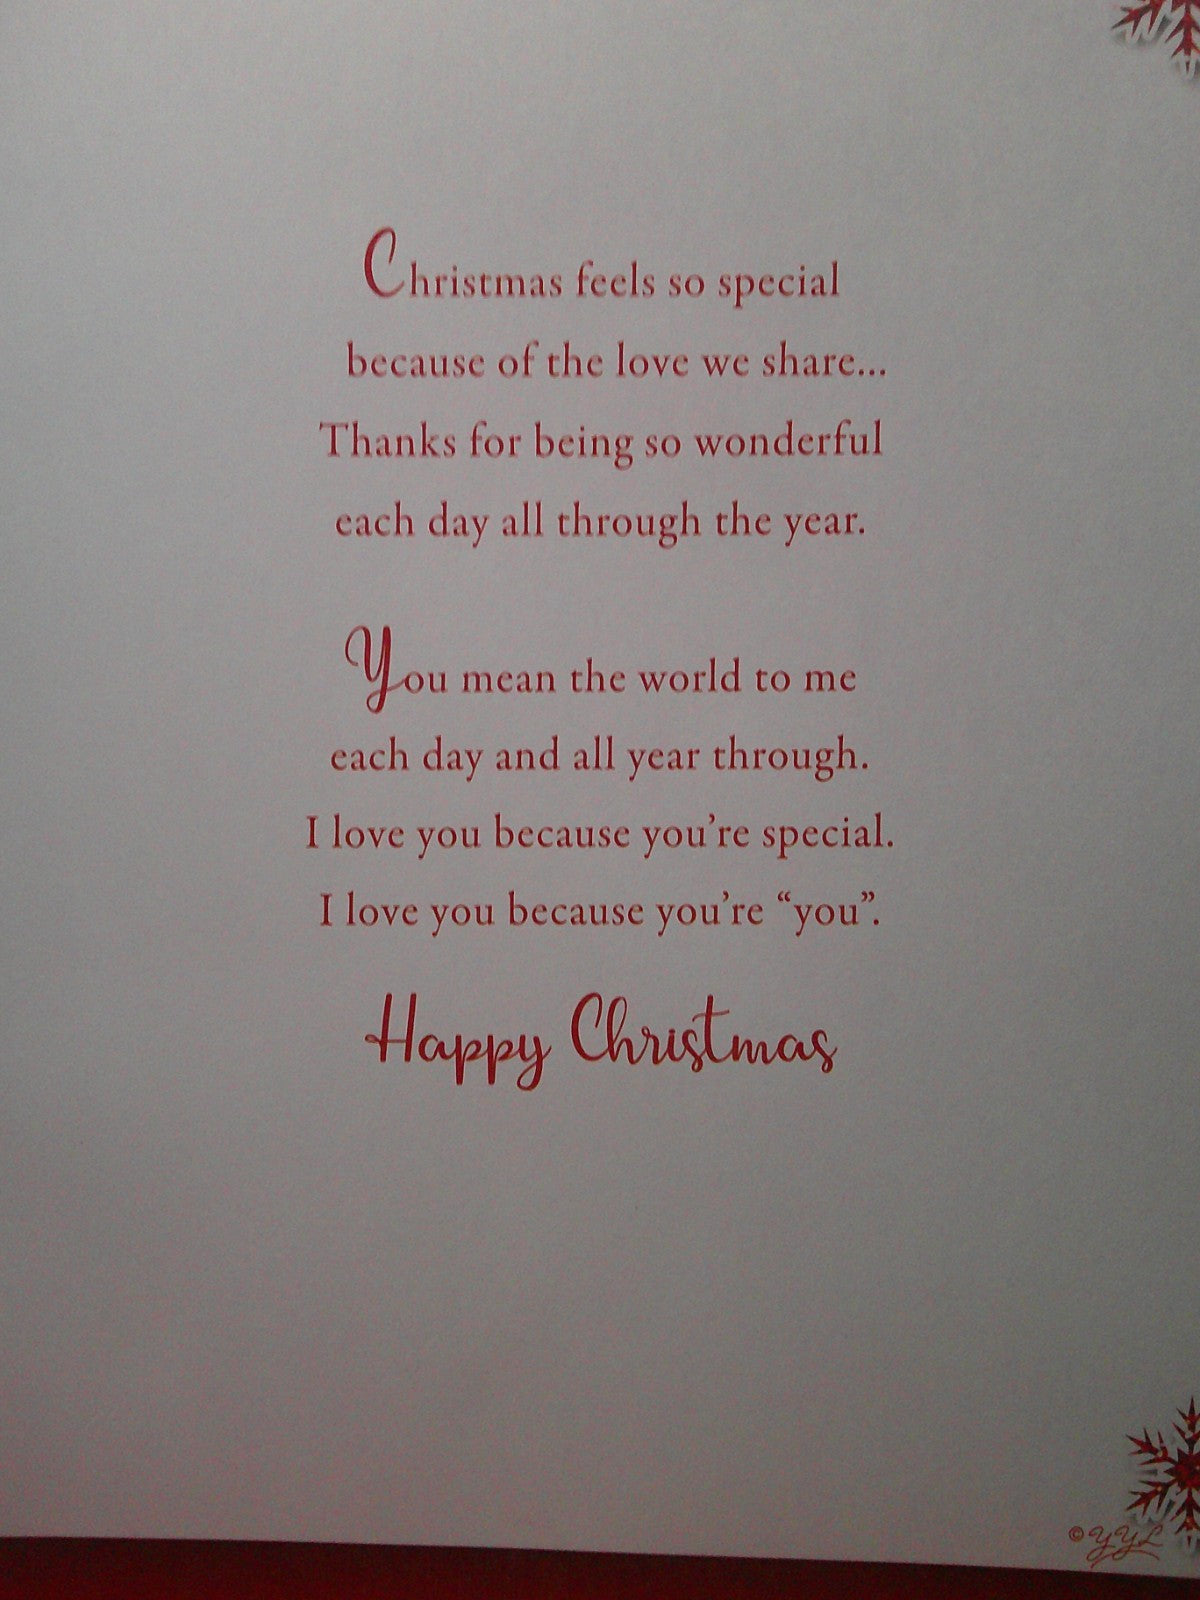 Christmas feels so special
because of the love we share...
Thanks for being so wonderful
each day all through the year.
You mean the world to me
each day and all year through.
I love you because you’re special.
I love you because you’re “you”.
Happy Christmas
©YYL